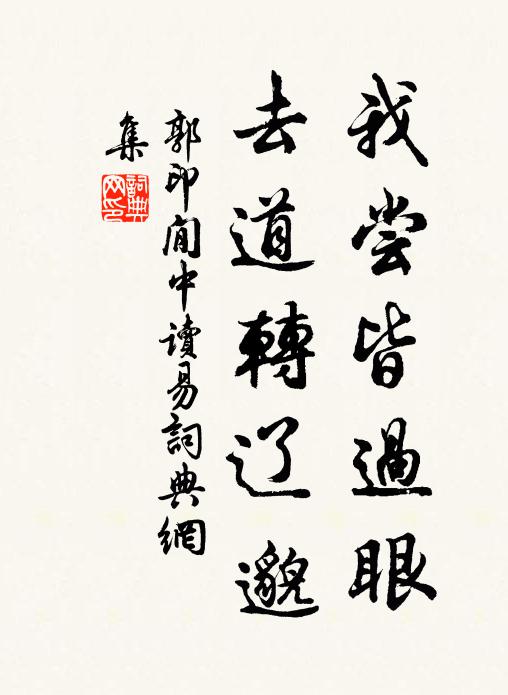 我尝皆過眼
去道轉辽邈
郭印閒中讀易詞典網
集
詞典
网印